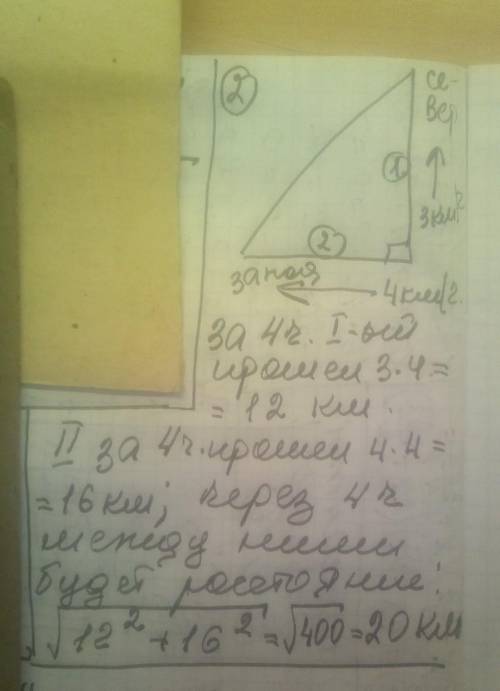 ②
се-
вер
①
3 км/ч
②
запад
4 км/ч.
за 4ч. I-ый
прошел 3·4=
= 12 км.
II за 4ч. прошел 4·4=
=16 км; через 4ч
между ними
будет расстояние:
√12² + 16² = √400 = 20 км